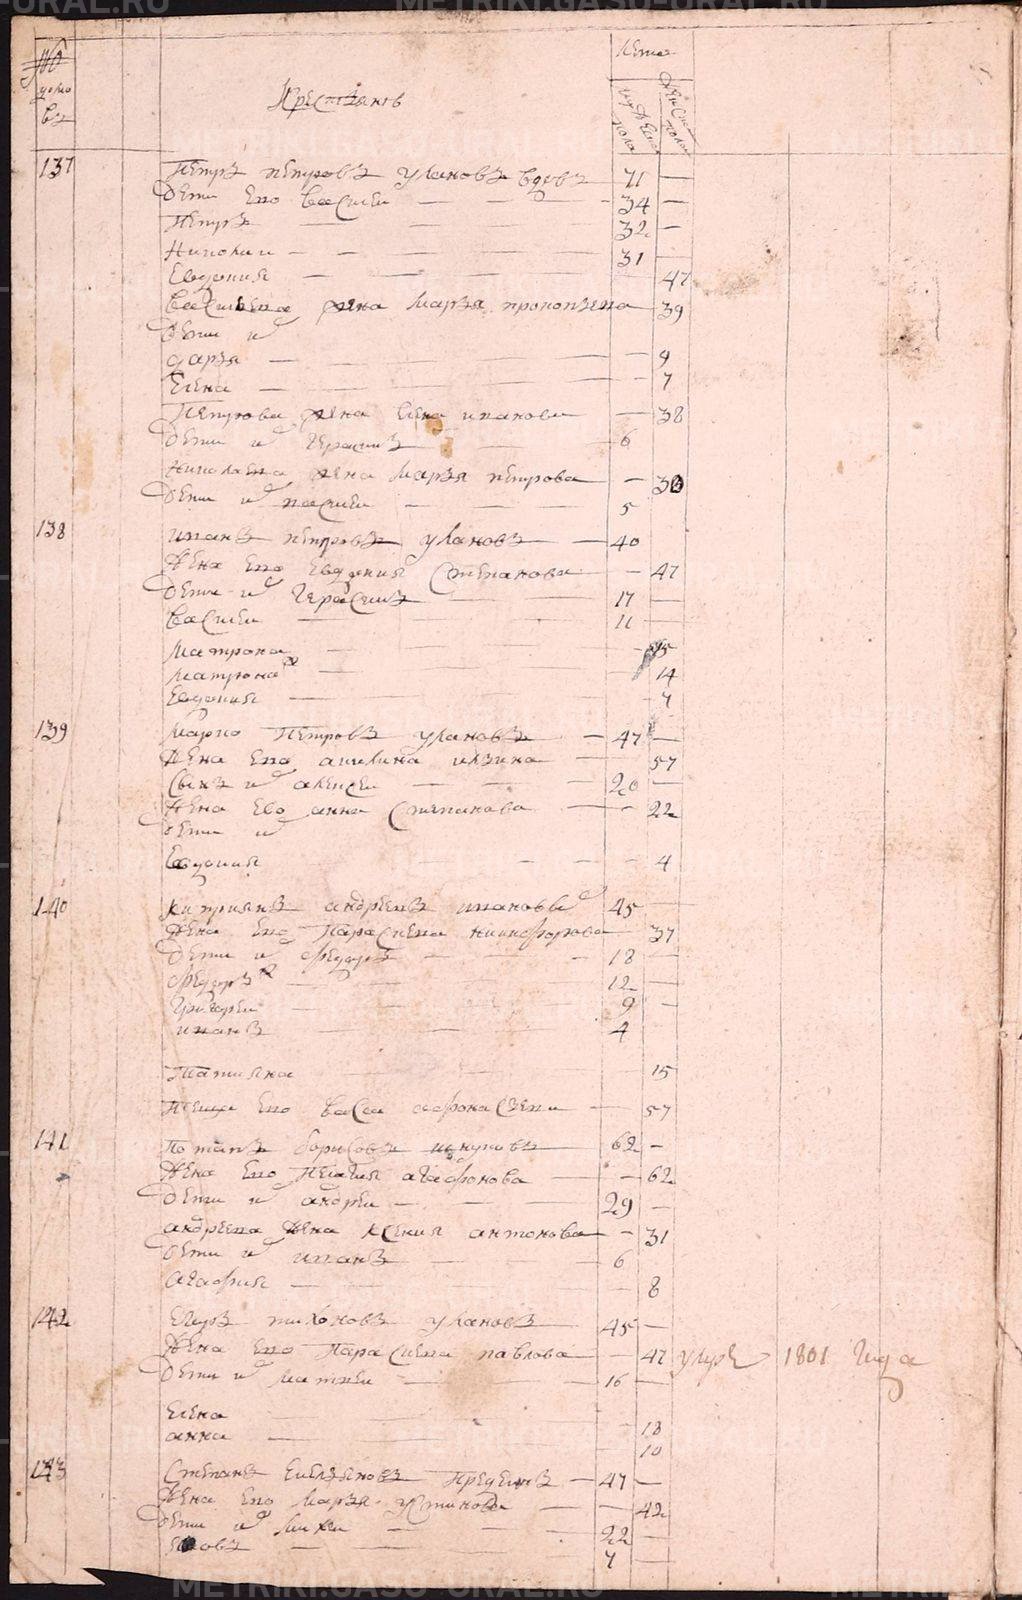 №
домо
въ
Крестьянъ
Лета
мужеска
пола
женска
пола
137 Петръ петровъ улановъ вдовъ 71
Дети его василеи 34
Петръ 32
Николаи 31
Евдокия 47
василева жена марья прокопьева 39
Дети их
дарья 9
Елена 7
Петрова жена елена иванова 38
Дети их герасимъ 6
Николаева жена марья петрова 30
Дети их василеи 5
138 иванъ петровъ улановъ 40
Жена его евдокия степанова 47
Дети их герасимъ 17
василеи 11
матрона
матрона 2 14
Евдокия 7
139 марко Петровъ улановъ 47
Жена его акилина ильина 57
Сынъ их алексеи 20
Жена ево анна степанова 22
Дети их
Евдокия 4
140 киприянъ андреевъ ивановых 45
Жена его Парасцева никифорова 37
Дети их федоръ 18
федоръ 2 12
Григореи 9
иванъ 4
Татияна 15
Теща его васа афонасьева 57
141 Потапъ борисовъ 62
Жена его Пелагия агафонова 62
Дети их андреи 29
андреева жена ксения антонова 31
Дети их иванъ 6
агафия 8
142 Егоръ тихоновъ улановъ 45
Жена его Парасцева павлова 47 умре 1801 Года
Дети их матвеи 16
Елена 18
анна 10
143 Степанъ емельяновъ 47
Жена его марья устинова 42
Дети их михеи 22
яковъ 7
METRIKI.GASU-URAL.RU